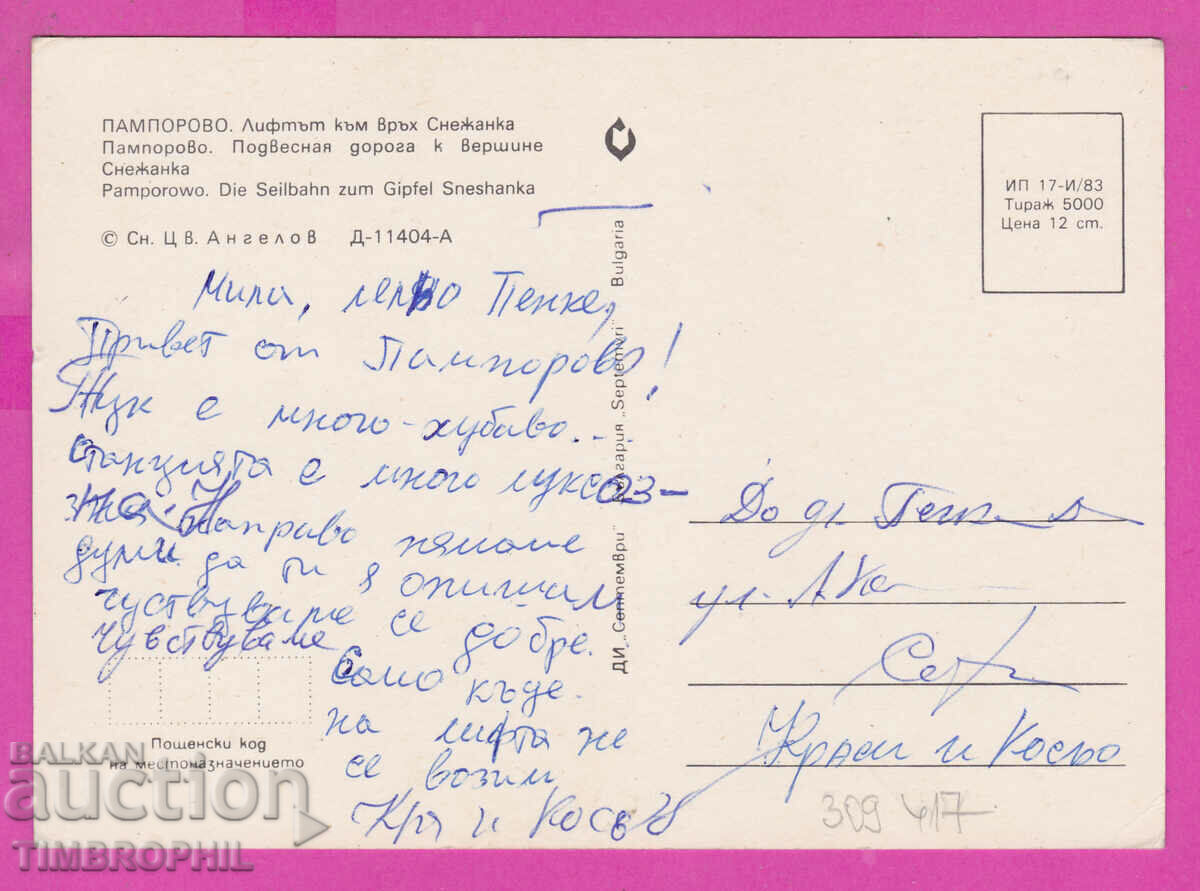 ПАМПОРОВО. Лифтът към връх Снежанка
Пампорово. Подвесная дорога к вершине
Снежанка
Pamporowo. Die Seilbahn zum Gipfel Sneshanka
© Сн. Цв. Ангелов Д-11404-А
ИП 17-И/83
Тираж 5000
Цена 12 ст.
ДИ „Септември" България „Septemvri" Bulgaria
Мила, Пенке,
Привет от Пампорово!
Тук е много хубаво...
станцията е много луксоз-
на. Направо нямаме
думи да ти я опишем
чуствуваме се добре.
чувствуваме
Само къде
на лифта не
се возим
Кра и Косьо
До
ул.
Краси и Косьо
Пощенски код
на местоназначението
309 417
BALKAN
auction
TIMBROPHIL